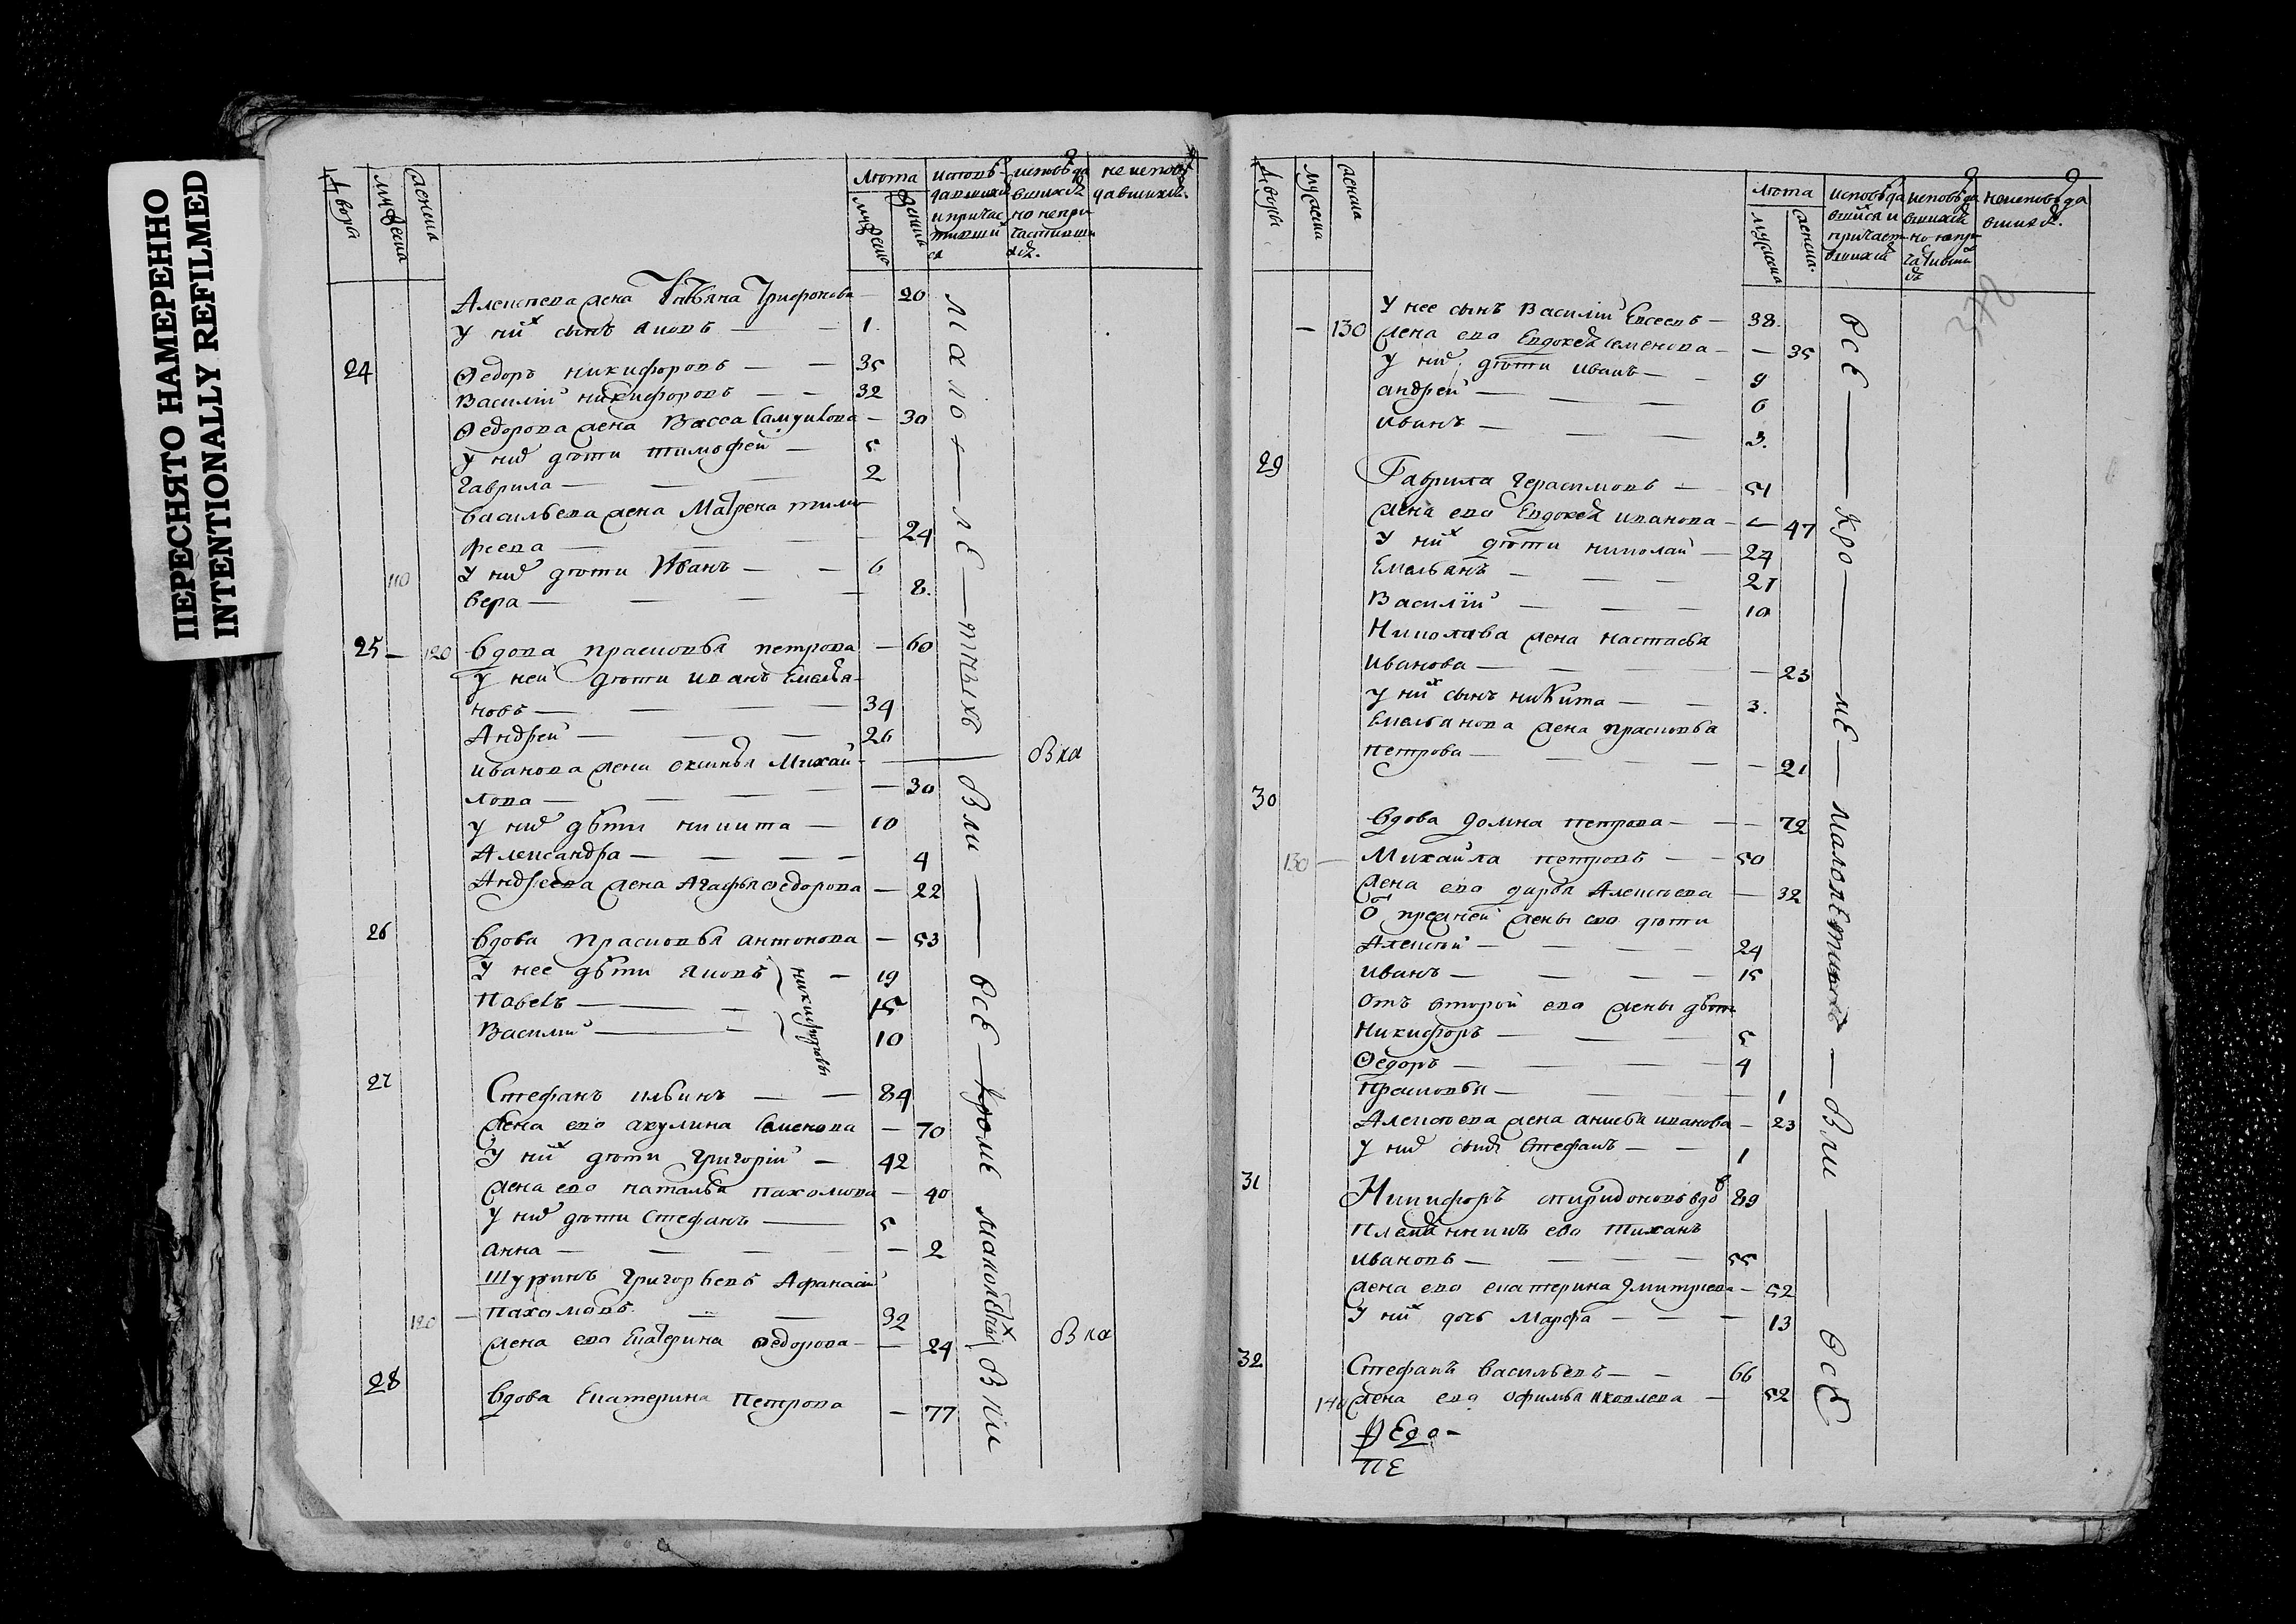 ПЕРЕСНЯТО НАМЕРЕННО
INTENTIONALLY REFILMED
Дворы
мужеска
женска
Лѣта
мужеска
женска
исповѣ-
давшихся
и причас
тивших
ся
исповѣда
вшихся
но непри
частивших
ся.
не исповѣ
давшихся.
Алексѣева жена Татьяна Трифонова — 20
У них сынъ Яковъ — 1
24 Ѳедоръ никифоровъ — 35
Василий никифоровъ — 32
Ѳедорова жена Васса Самуилова — 30
у них дѣти тимофей — 5
Гаврила — 2
Васильева жена Матрена тимо
феева — 24
110 У них дѣти Иванъ — 6
Вера — 8.
25 — 120 Вдова прасковья петрова — 60
У ней дѣти иванъ Емелья-
новъ — 34
Андрей — 26
иванова жена оксинья Михай-
лова — 30
у них дѣти никита — 10
Александра — 4
Андреева жена Агафья Ѳедорова — 22
26 Вдова Прасковья антонова — 53
У нее дѣти Яковъ — 19
Павелъ — 15
Василий — 10
никифоровы
27 Стефанъ ильинъ — 84
Жена ево акулина Семенова — 70
У них дѣти Григорий — 42
Жена ево наталья пахомова — 40
У них дѣти Стефанъ — 5
анна — 2
Шуринъ Григорьевъ Афанасий
120 — пахомовъ — 32
Жена ево Екатерина Ѳедорова — 24
28 Вдова Екатерина Петрова — 77
мало — ле — тныхъ
Вли — все — кроме малолетных Вли
Вка
Вка
Дворы
мужеска
женска
лѣта
мужеска
женска.
исповѣда
вшихся и
причаст
вшихся
исповѣда
вшихся
но непри
частивши
ся
неисповѣда
вшихся.
378
У нее сынъ Василий Евсеевъ — 38.
— 130 Жена ево Евдокея Семенова — 35
У них дѣти иванъ — 9
андрей — 6
иванъ — 3.
29 Гаврила Герасимовъ — 51
Жена ево Евдокея иванова — 47
У них дѣти николай — 24
Емельянъ — 21
Василий — 10
Николаева жена настасья
иванова — 23
У них сынъ никита — 3.
Емельянова жена прасковья
петрова — 21
30 Вдова домна петрова — 72
130 — Михайла петровъ — 50
Жена ево дарья Алексѣева — 32
От прежней жены ево дѣти
Алексѣй — 24
иванъ — 15
отъ второй ево жены дѣти
Никифоръ — 5
Ѳедоръ — 4
прасковья — 1
Алексѣева жена анисья иванова — 23
У них сынъ Стефанъ — 1
31 Никифоръ спиридоновъ вдов 89
племянникъ ево тиханъ
ивановъ — 55
Жена ево екатерина дмитриева — 52
У них дочь Марфа — 13
32 Стефанъ васильевъ — 66
140 Жена ево офимья яковлева — 52
все — кро — ме — малолетныхъ — Вли — все